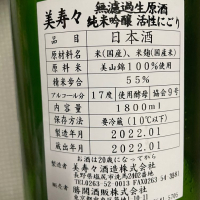 美寿々 無濾過生原酒
純米吟醸 活性にごり
品目 日本酒
原材料名 米(国産)、米麹(国産米)
原料米 美山錦100%使用
精米歩合 55%
アルコール分 17度 使用酵母 協会9号
内容量 1800ml
保存方法 要冷蔵(10℃以下)
製造年月 2022.01
蔵出年月 2022.01
お酒は20歳になってから
製造者 美寿々酒造株式会社
長野県塩尻市洗馬2402番地
TEL0263-52-0013 FAX0263-54-
勝鬨酒販株式会社